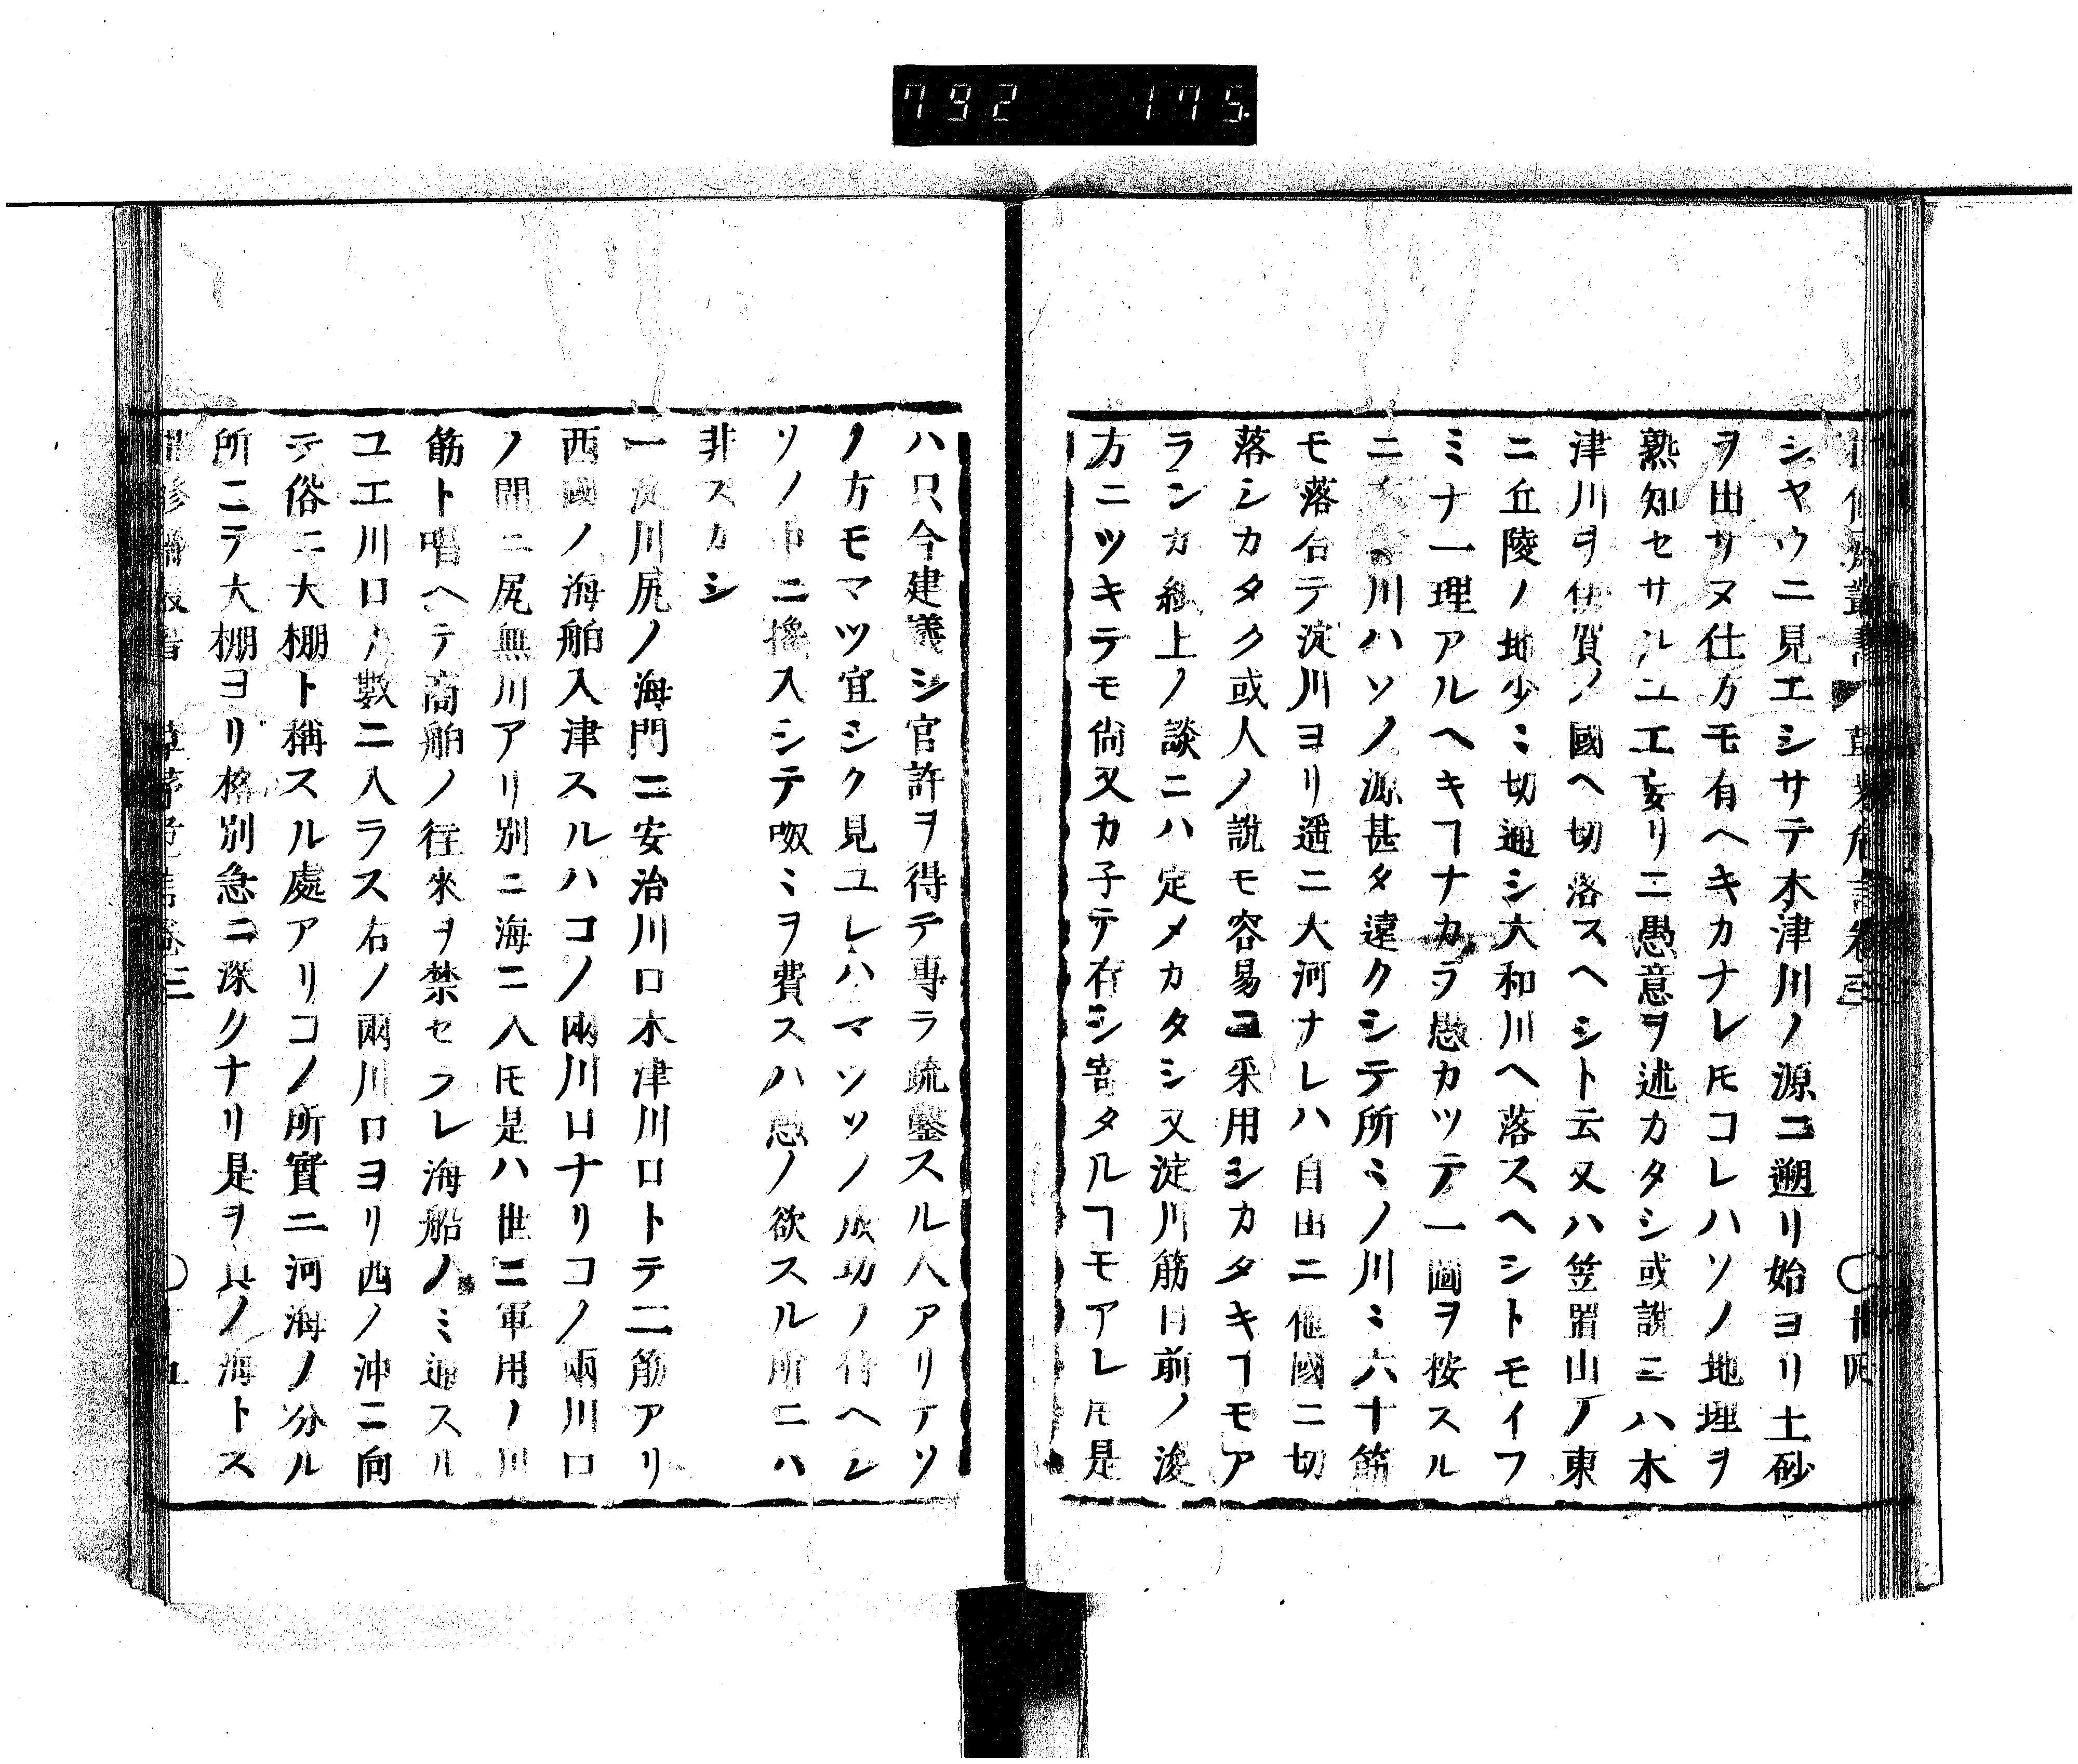 792 175
シヤウニ見エシサテ木津川ノ源ニ遡リ始ヨリ土砂
ヲ出サヌ仕方モ有ヘキカナレ𪜈コレハソノ地理ヲ
熟知セサルユエ妄リニ愚意ヲ述カタシ或説ニハ木
津川ヲ伊賀ノ國ヘ切落スヘシト云又ハ笠置山ノ東
ニ丘陵ノ地少ミ切通シ大和川ヘ落スヘシトモイフ
ミナ一理アルヘキヿナカラ愚カツテ一圖ヲ按スル
ニ川ハソノ源甚タ遠クシテ所ミノ川ミ六十筋
モ落合テ淀川ヨリ遥ニ大河ナレハ自由ニ他國ニ切
落シカタク或人ノ說モ容易ニ采用シカタキヿモア
ランカ紙上ノ談ニハ定メカタシ又淀川筋目前ノ浚
方ニツキテモ尙又カ子テ存シ寄タルヿモアレ𪜈是
ハ只今建議シ官許ヲ得テ專ラ疏鑿スル人アリテソ
ノ方モマツ宜シク見ユレハマツソノ成功ノ待ヘレ
ソノ中ニ攙入シテ呶ミヲ費スハ愚ノ欲スル所ニハ
非スカシ
一淀川尻ノ海門ニ安治川口木津川口トテ二筋アリ
西國ノ海舶入津スルハコノ兩川口ナリコノ兩川口
ノ間ニ尻無川アリ別ニ海ニ入𪜈是ハ世ニ軍用ノ川
筋ト唱ヘテ商舶ノ往來ヲ禁セラレ海船ノミ通スル
ユエ川口ノ數ニ入ラス右ノ兩川口ヨリ西ノ沖ニ向
テ俗ニ大棚ト稱スル處アリコノ所實ニ河海ノ分ル
所ニテ大棚ヨリ格別急ニ深クナリ是ヲ眞ノ海トス